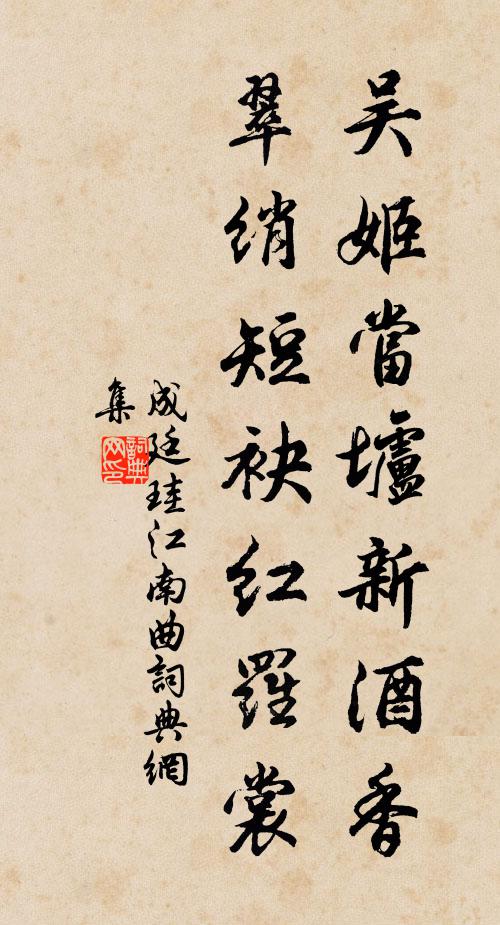 吴姬當壚新酒香
翠綃短袂红羅裳
成廷珪江南曲詞典網
集
詞典网印